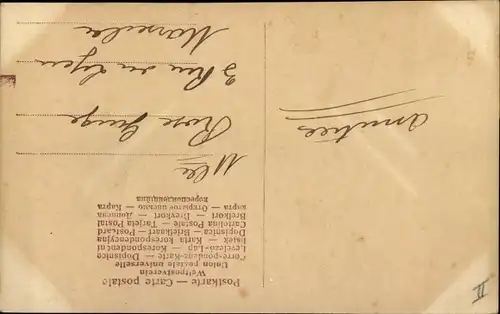 Postkarte — Carte postale
Weltpostverein
Union postale universelle
Correspondenz-Karte — Dopisnice
Levelező-Lap — Korrespondent
lişek — Karta korespondencyjna
Dopisnica — Briefkaart — Postcard
Cartolina Postale — Tarjeta Postal
Brefkort — Brevkort — Дописна
карта — Открытое письмо — Карта
кореспонденцiйна
Mlle
Rose
3 Rue du
Marseille
Amitiés
II